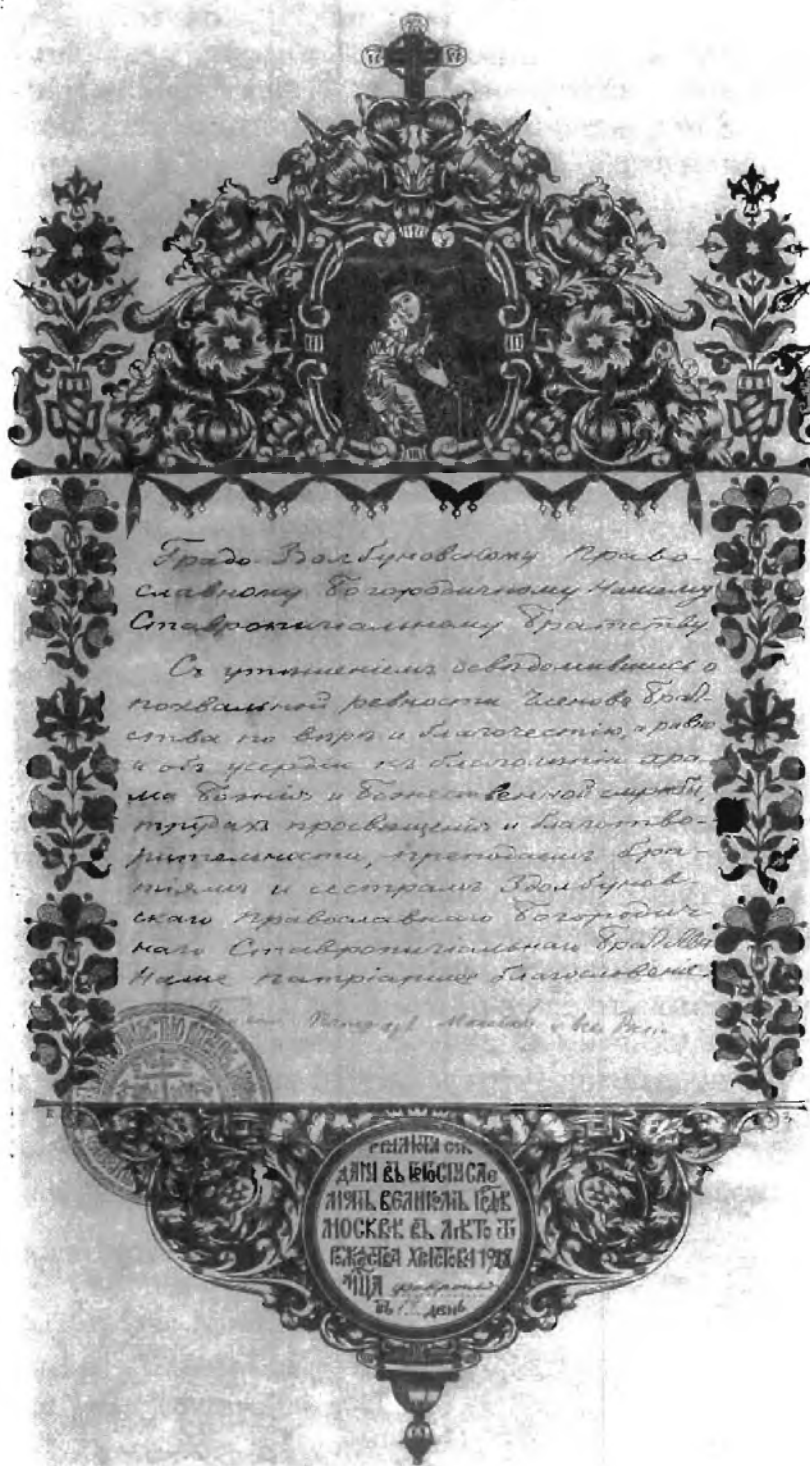 Градо-Здолбуновскому Право-
славному Богородичному Нашему
Ставропигиальному Братству
Съ утѣшенiемъ освѣдомившись о
похвальной ревности членовъ Брат-
ства по вѣрѣ и благочестiю, а равно
и объ усердiи къ благолѣпiю хра-
ма Божiя и Божественной службы,
трудахъ просвѣщенiя и благотво-
рительности, преподаемъ бра-
тiямъ и сестрамъ Здолбунов-
скаго Православнаго Богородич-
наго Ставропигiальнаго Братства
Наше патрiаршее благословенiе.
Патрiархъ Москвы и Всея Россiи
ДАНА ВЪ БОГОСПАСАЕ
МОМЪ ВЕЛИКОМЪ ГРАДѢ
МОСКВѢ ВЪ ЛѢТО ѾТ
РЖСТВА ХРИСТОВА
МЦА февраля
ВЪ ДЕНЬ